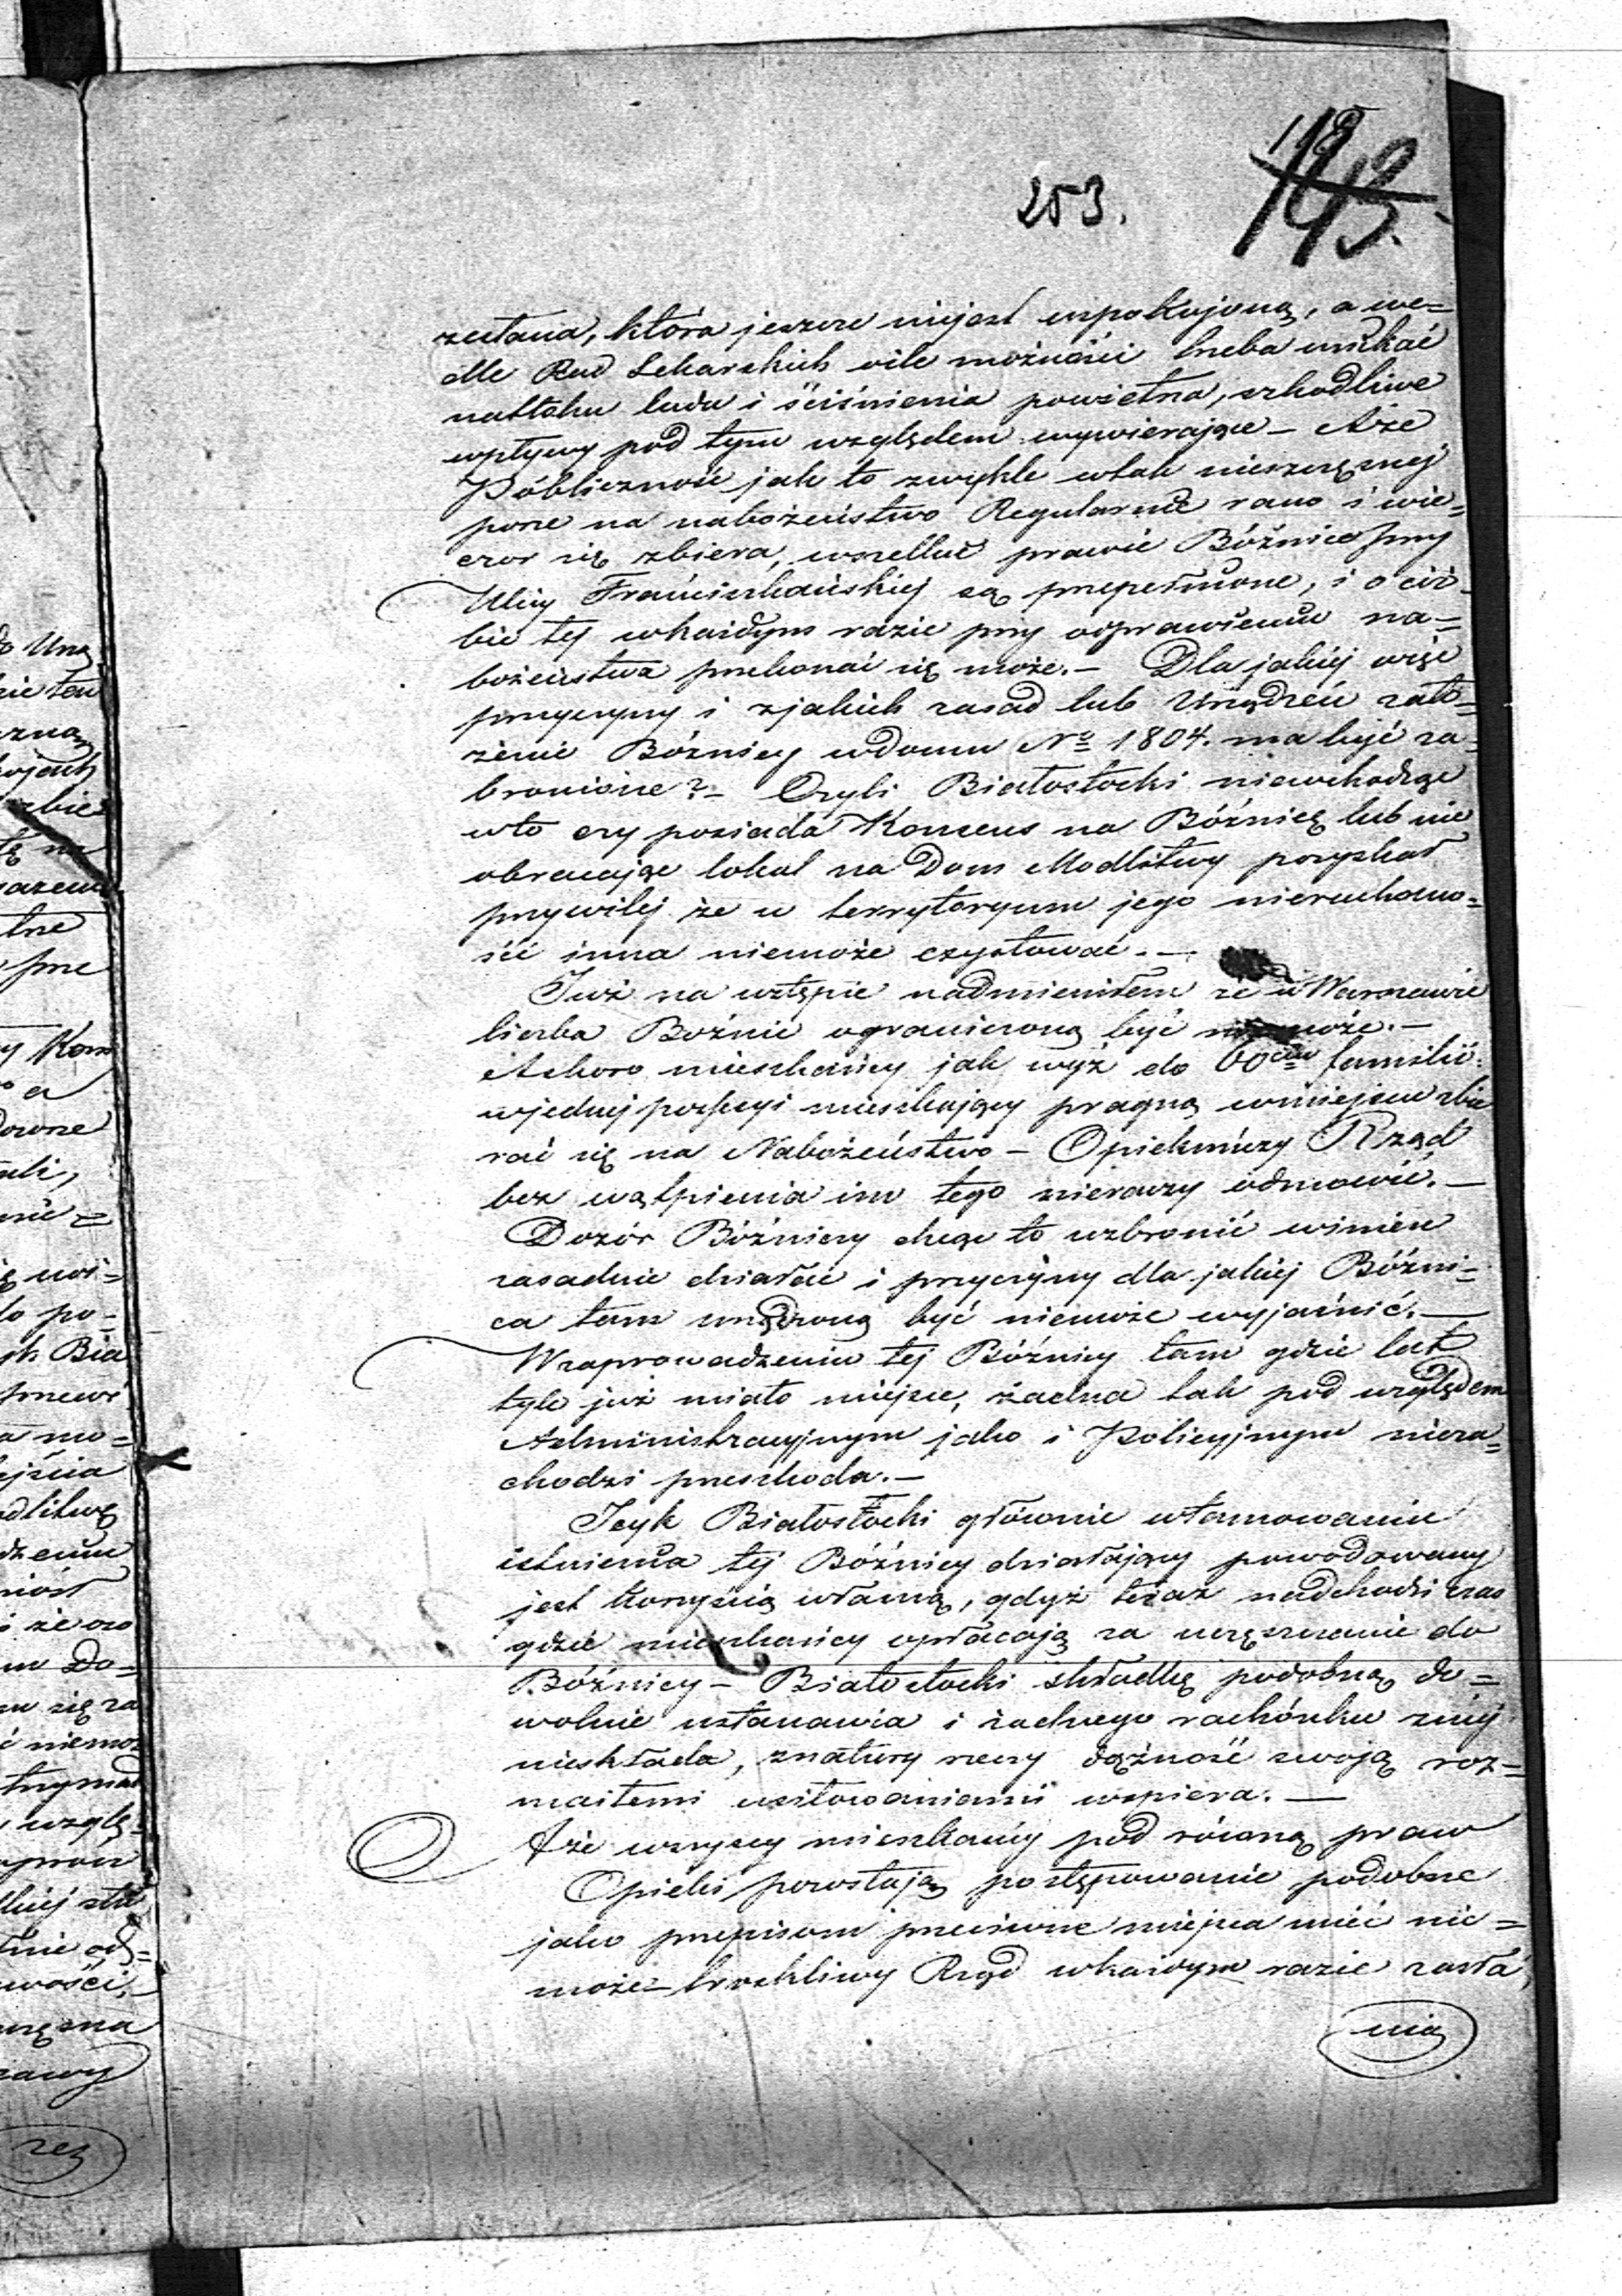 253.
143.
zesłana, która jeszcze niejest uspokojoną, a we=
dle Rad Lekarskich oile możności trzeba unikać
natłoku ludu i ściśnienia powietrza, szkodliwe
wpływy pod tym względem wywierające – Aże
Póbliczność jak to zwykle wtak nieszczęsnej
porze na nabożeństwo Regularnie rano i wie=
czor się zbiera, wszelkie prawie Bóźnice przy
Ulicy Franciszkańskiej są przepełnione, i o ciż-
bie tej wkażdym razie przy odprawieniu na=
bożeństwa przekonać się może. – Dla jakiej więc
przyczyny i zjakich zasad lub Urządzeń zało=
żenie Bóźnicy wdomu No 1804. ma być za=
bronione? – Czyli Białostocki niewchodząc
wto czy posiada Konsens na Bóźnicę lub nie
obracając lokal na Dom Modlitwy pozyskał
przywilej że w terrytoryum jego nieruchomo=
ści inna niemoże exystować. –
Już na wstępie nadmieniłem że w Warszawie
liczba Bóźnic ograniczoną być może. –
Askoro mieszkańcy jak wyż do 60ciu familii
wjednej possesyi mieszkający pragną wmiejscu zbie
rać się na Nabożeństwo – Opiekuńczy Rząd
bez wątpienia im tego nieraczy odmówić. –
Dozór Bóźniczy chcąc to wzbronić winien
zasadnie działać i przyczyny dla jakiej Bóźni=
ca tam urządzoną być niemoże wyjaśnić. –
Wzaprowadzeniu tej Bóźnicy tam gdzie lat
tyle już miało miejsce, żadna tak pod względem
Administracyjnym jako i Policyjnym nieza=
chodzi przeszkoda. –
Icyk Białostocki głównie wtamowaniu
istnienia tej Bóźnicy działający powodowany
jest korzyścią własną, gdyż teraz nadchodzi czas
gdzie mieszkańcy opłacają za uczęszczanie do
Bóźnicy – Białostocki składkę podobną do=
wolnie ustanawia i żadnego rachónku zniéj
nieskłada, znatury rzeczy dążność swoją roz=
maitemi usiłowaniami wspiera. –
Aże wszyscy mieszkańcy pod równą praw
Opieką pozostają postępowanie podobne
jako przepisom przeciwne miejsca mieć nie=
może – troskliwy Rząd wkażdym razie zasła
nia